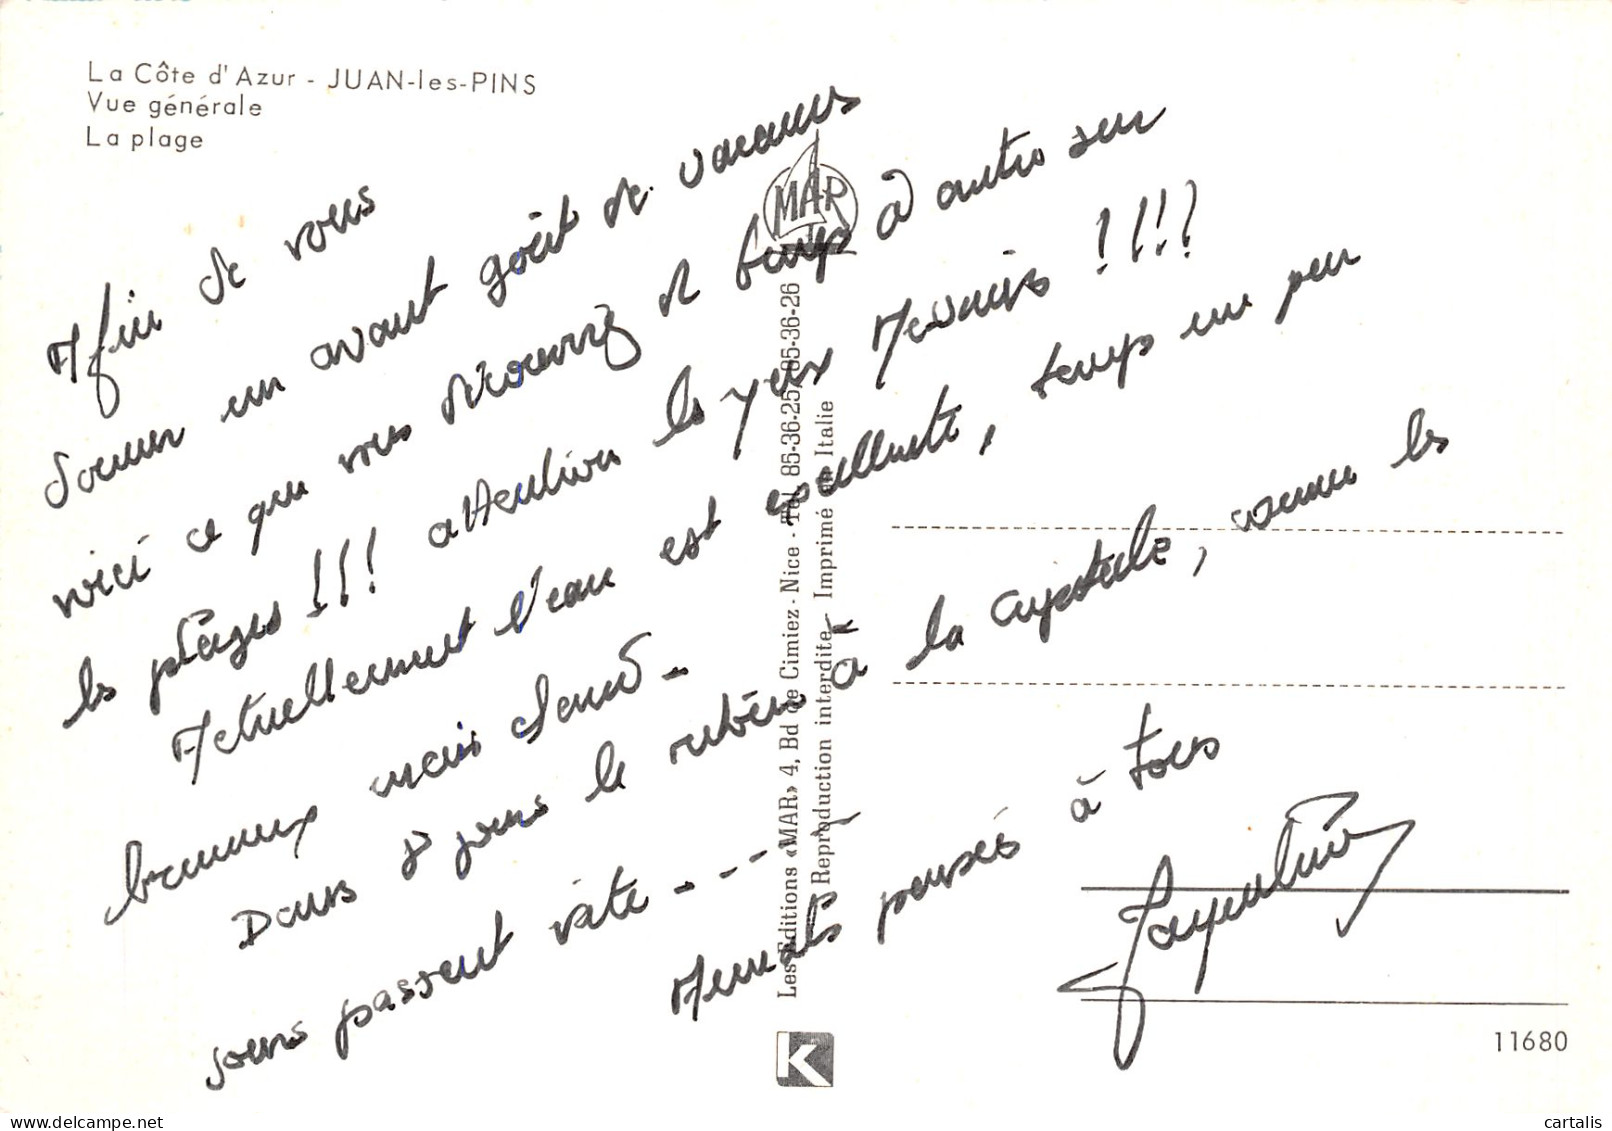 La Côte d'Azur - JUAN-les-PINS
Vue générale
La plage
Afin de vous
donner un avant goût de vacances
voici ce que vous découvrirez de temps à autre sur
les plages !!! attention les yeux Messieurs !!!!
Actuellement l'eau est excellente, temps un peu
brumeux mais chaud -
Dans 8 jours le retour à la capitale, comme les
jours passent vite - - - -
Amicales pensées à tous
MAR
Les Editions «MAR» 4, Bd de Cimiez - Nice - Tél. 85-36-25 / 85-36-26
Reproduction interdite - Imprimé en Italie
K
11680
cartalis
www.delcampe.net